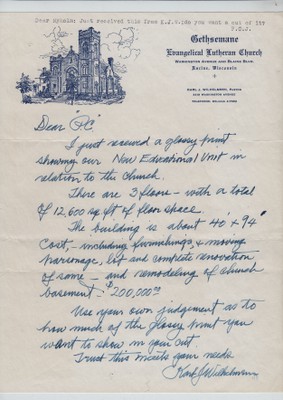 Just received this from K.J.W.
you want a cut of it?
Gethsemane
Evangelical Lutheran Church
Washington Avenue and Blaine Blvd.
Racine, Wisconsin
Karl J. Wilhelmsen, Pastor
Washington Avenue
Dear "PC"
I just received a glossy print
showing our New Educational Unit in
relation to the Church.
There are 3 floors - with a total
of 12,600 sq ft of floor space.
The building is about 40' x 94'
Cost - including furnishings, & moving
parsonage, lot and complete renovation
of same - and remodeling of church
basement - $200,000.00
Use your own judgement as to
how much of the glossy print you
want to show in your cut
Trust this meets your needs.
Karl J Wilhelmsen